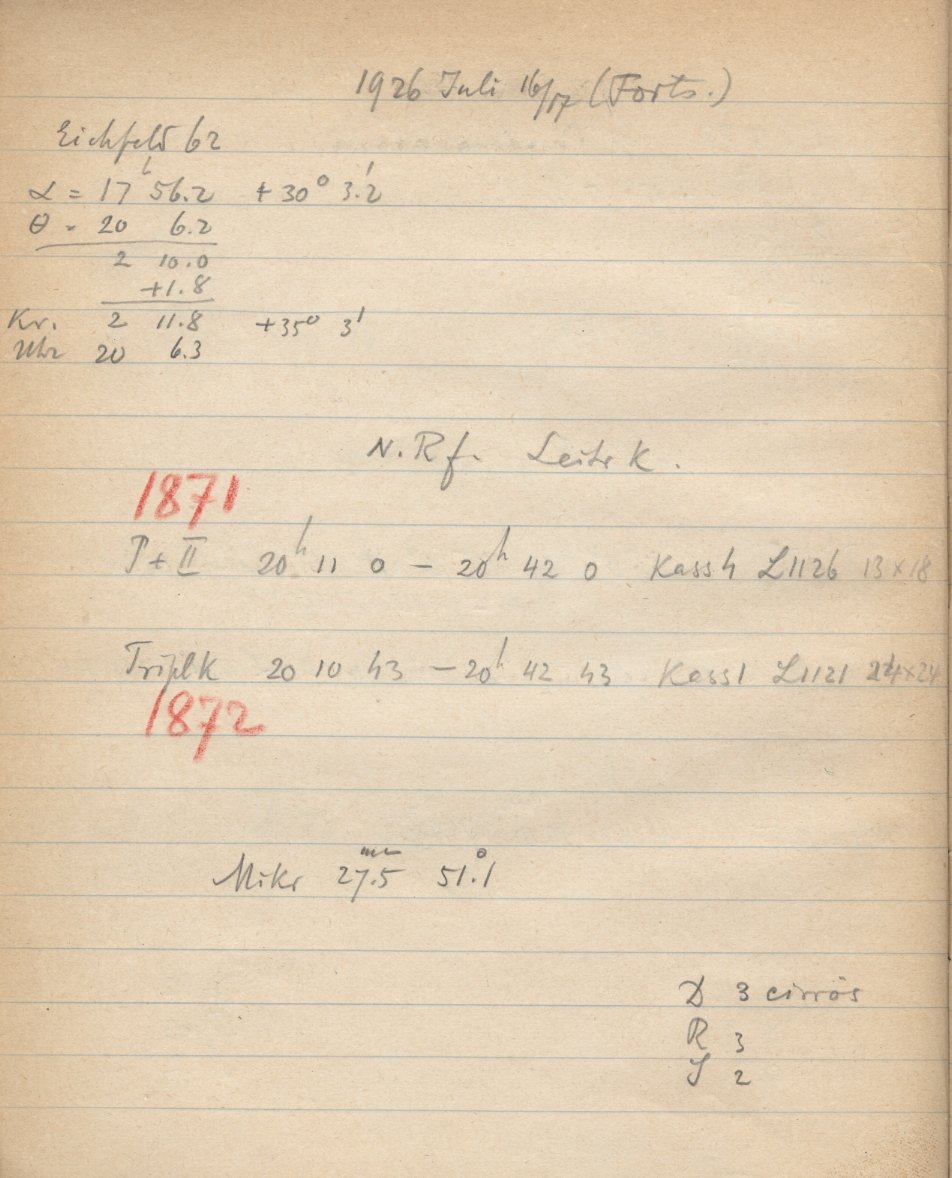 1926 Juli 16/17 (Forts.)
Eichfeld 62
α = 17ʰ 56.2 +30° 3.2'
θ = 20 6.2
2 10.0
+1.8
Kr. 2 11.8 +35° 3'
Uhr 20 6.3
N. Rf. Leitr K.
1871
I + II 20ʰ 11 0 – 20ʰ 42 0 Kass 4 L1126 13×18
Tripl K 20 10 43 – 20ʰ 42 43 Kass 1 L1121 24×24
1872
Mikr 27.5ᵐᵐ 51.1°
D 3 cirrös
R 3
S 2